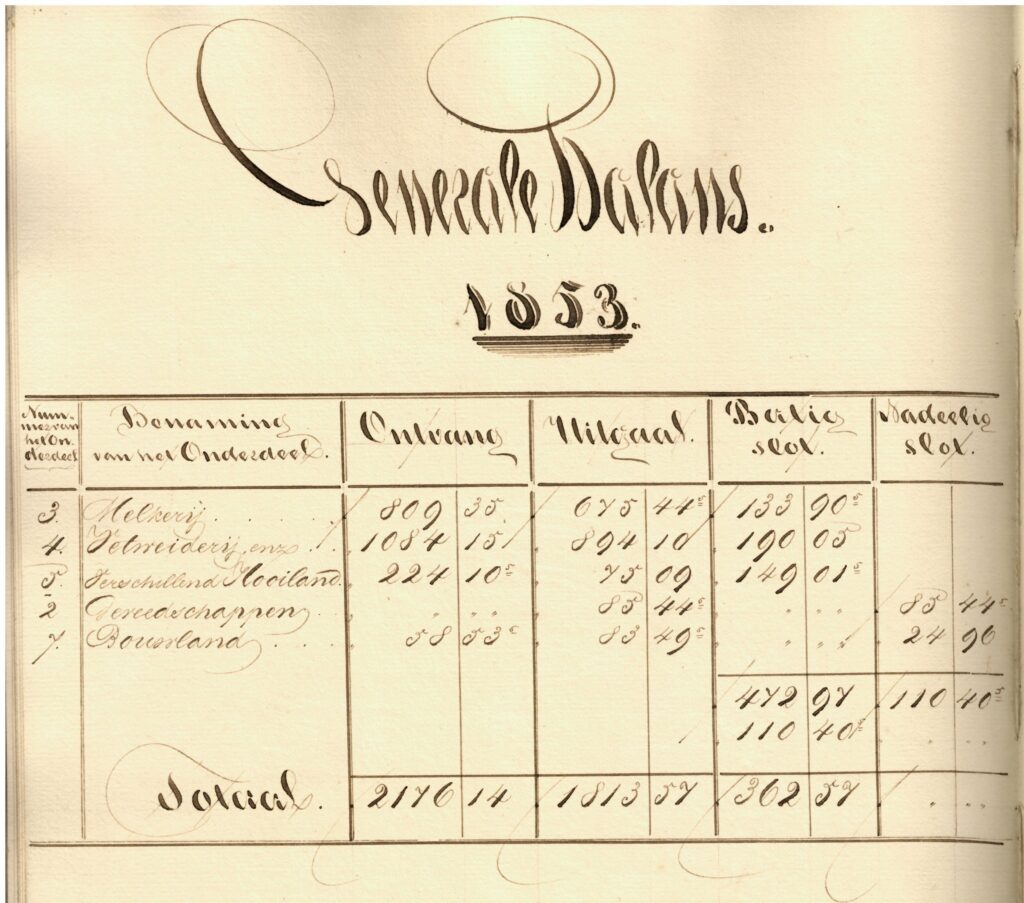 Generale Balans.
1853.
Nummer van het Onderdeel
Benaming van het Onderdeel.
Ontvang
Uitgaaf.
Batig slot.
Nadeelig slot.
3. Melkerij . . . . . 809 35 675 44⁵ 133 90⁵
4. Vetweiderij enz . . 1084 15 894 10 190 05
5. Verschillend Hooiland. 224 10⁵ 75 09 149 01⁵
2 Gereedschappen . . " " " 85 44⁵ " " " 85 44⁵
7. Bouwland . . . 58 53⁵ 83 49⁵ " " " 24 96
472 97 110 40⁵
110 40⁵ " " "
Totaal. 2176 14 1813 57 362 57 " " "